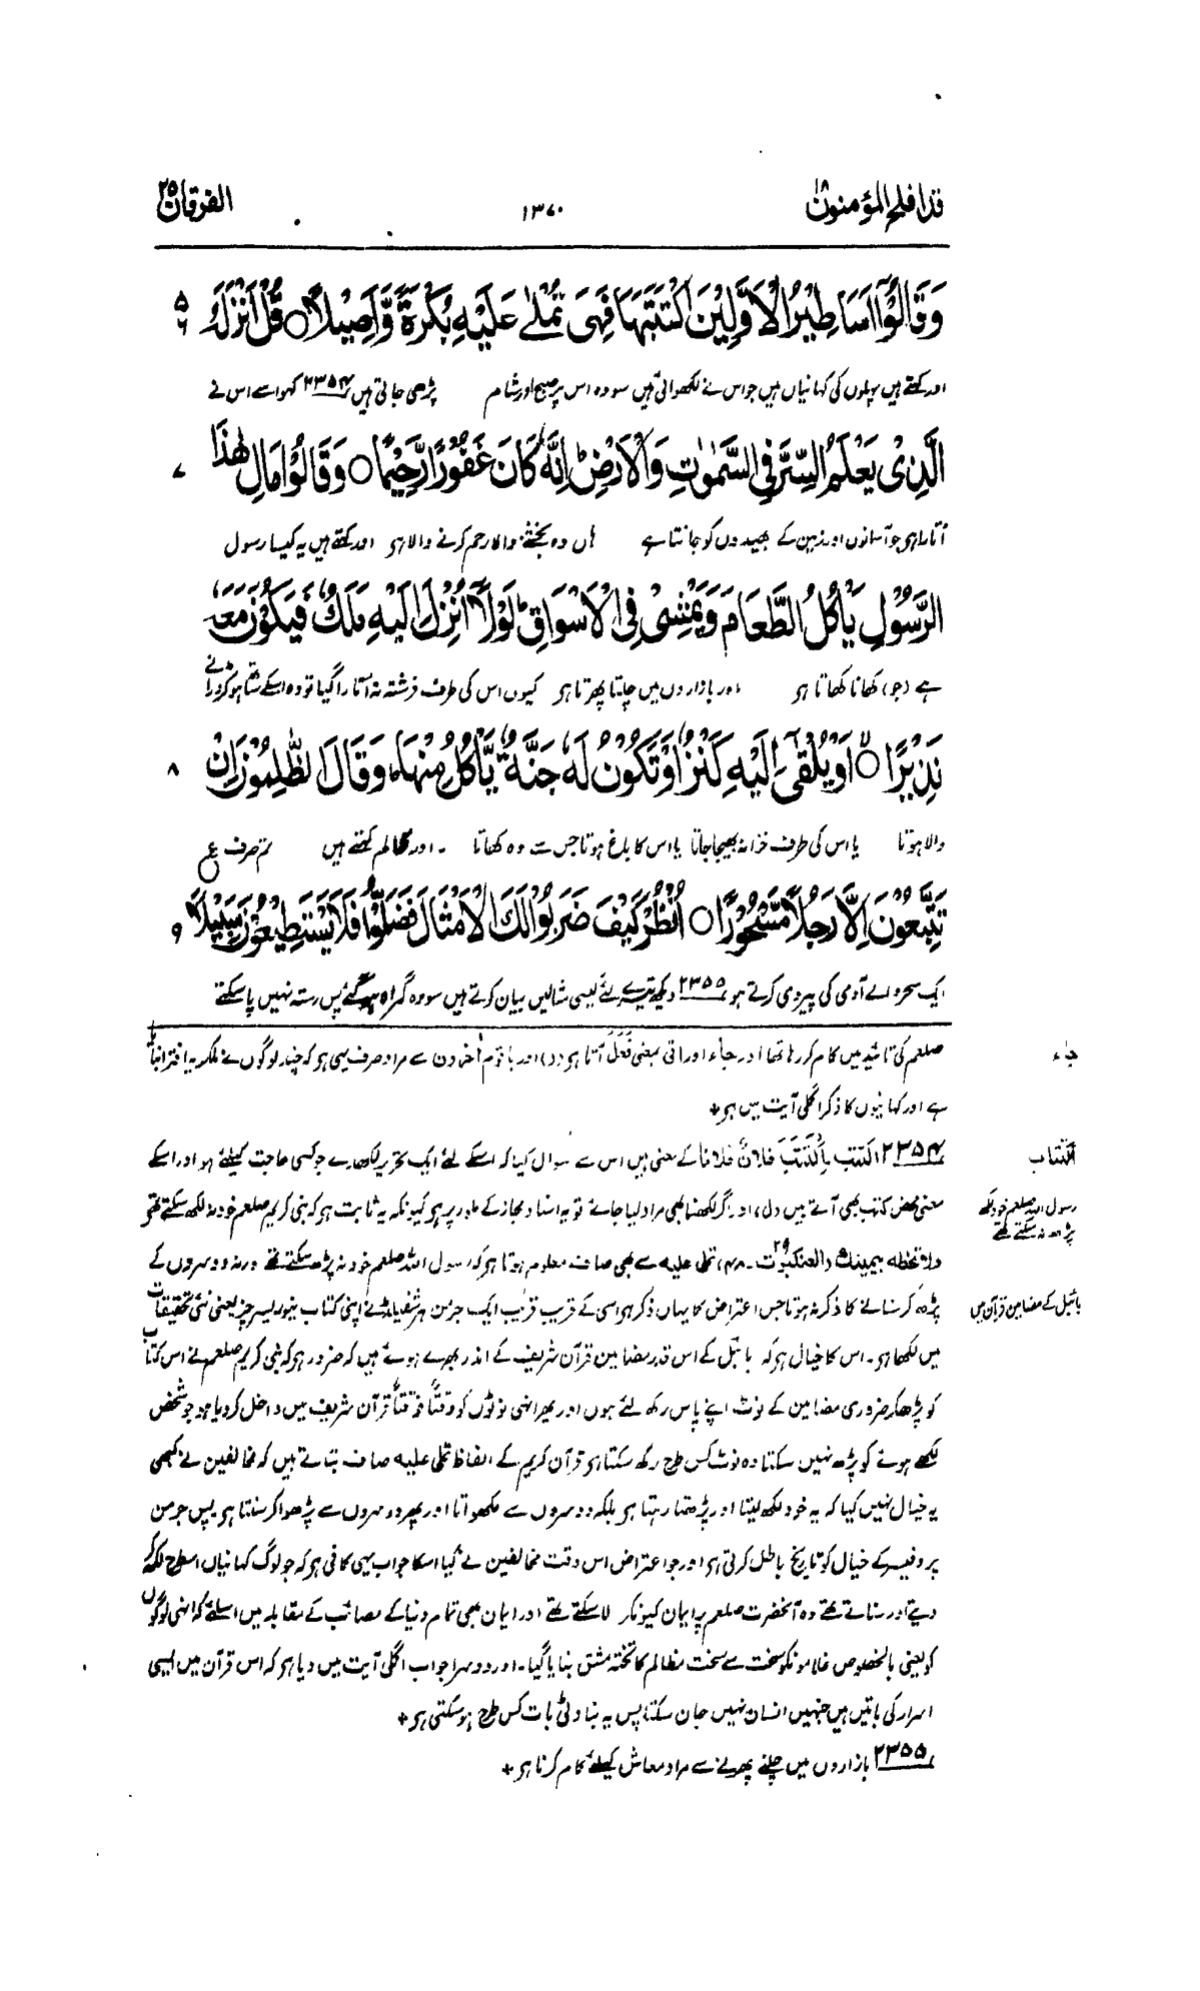 قد افلح المؤمنون ۱۸
۱۳۷۰
الفرقان ۲۵
وَقَالُوْٓا اَسَاطِيْرُ الْاَوَّلِيْنَ اكْتَتَبَهَا فَهِيَ تُمْلٰى عَلَيْهِ بُكْرَةً وَّاَصِيْلًا ○ قُلْ اَنْزَلَهُ ۵ ۶
اور کہتے ہیں پہلوں کی کہانیاں ہیں جو اس نے لکھوائی ہیں سو وہ اس پر صبح اور شام پڑھی جاتی ہیں ۲۳۵۴ کہو اسے اس نے
الَّذِيْ يَعْلَمُ السِّرَّ فِي السَّمٰوٰتِ وَالْاَرْضِ ؕ اِنَّهٗ كَانَ غَفُوْرًا رَّحِيْمًا ○ وَقَالُوْا مَالِ هٰذَا ۷
اُتارا ہو جو آسمانوں اور زمین کے بھیدوں کو جانتا ہے ہاں وہ بخشنے والا رحم کرنے والا ہو اور کہتے ہیں یہ کیسا رسول
الرَّسُوْلِ يَاْكُلُ الطَّعَامَ وَيَمْشِيْ فِي الْاَسْوَاقِ ؕ لَوْلَآ اُنْزِلَ اِلَيْهِ مَلَكٌ فَيَكُوْنَ مَعَهٗ
ہے (جو) کھانا کھاتا ہو اور بازاروں میں چلتا پھرتا ہو کیوں اس کی طرف فرشتہ نہ اُتارا گیا تو وہ اسکے ساتھ ہو کر ڈرانے
نَذِيْرًا ○ اَوْ يُلْقٰٓى اِلَيْهِ كَنْزٌ اَوْ تَكُوْنُ لَهٗ جَنَّةٌ يَّاْكُلُ مِنْهَا ؕ وَقَالَ الظّٰلِمُوْنَ اِنْ ۸
والا ہوتا یا اس کی طرف خزانہ بھیجا جاتا یا اس کا باغ ہوتا جس سے وہ کھاتا ۔ اور ظالم کہتے ہیں تم صرف ع
تَتَّبِعُوْنَ اِلَّا رَجُلًا مَّسْحُوْرًا ○ اُنْظُرْ كَيْفَ ضَرَبُوْا لَكَ الْاَمْثَالَ فَضَلُّوْا فَلَا يَسْتَطِيْعُوْنَ سَبِيْلًا ۹
ایک سحر والے آدمی کی پیروی کرتے ہو ۲۳۵۵ دیکھ تیرے لئے کیسی مثالیں بیان کرتے ہیں سو وہ گمراہ ہو گئے پس رستہ نہیں پا سکتے
صلعم کی تائید میں کام کر رہا تھا اور جاء اور اتی بمعنی فعل آتا ہو (ر) اور با قوم اٰخرون سے مراد صرف یہی ہو کہ چند لوگوں نے ملکر یہ افترا بنایا
جاء
ہے اور کہانیوں کا ذکر اگلی آیت میں ہو +
۲۳۵۴ اکتتب۔ اِکْتَتَبَ فلانٌ فلانًا کے معنی ہیں اس سے سوال کیا کہ اسکے لئے ایک تحریر لکھدے جو کسی حاجت کیلئے ہو اور اسکے
اکتتاب
معنی محض کتب بھی آتے ہیں (ل) اور اگر لکھنا بھی مراد لیا جائے تو یہ اسناد مجاز کے طور پر ہو کیونکہ یہ ثابت ہو کہ نبی کریم صلعم خود نہ لکھ سکتے تھے
رسول اللہ صلعم خود لکھ
پڑھ نہ سکتے تھے
ولا تخطه بيمينك (العنکبوت ۲۹۔۴۸) تملى عليه سے بھی صاف معلوم ہوتا ہو کہ رسول اللہ صلعم خود نہ پڑھ سکتے تھے ورنہ دوسروں کے
پڑھ کر سنانے کا ذکر نہ ہوتا جس اعتراض کا یہاں ذکر ہو اسی کے قریب قریب ایک جرمن ہرشفیلڈ نے اپنی کتاب نیو ریسرچز یعنی نئی تحقیقات
بائبل کے مضامین قرآن میں
میں لکھا ہو۔ اس کا خیال ہو کہ بائبل کے اس قدر مضامین قرآن شریف کے اندر بھرے ہوئے ہیں کہ ضرور ہو کہ نبی کریم صلعم نے اس کتاب
کو پڑھکر ضروری مضامین کے نوٹ اپنے پاس رکھ لئے ہوں اور پھر انہی نوٹوں کو وقتًا فوقتًا قرآن شریف میں داخل کر دیا ہو جو شخص
لکھے ہوئے کو پڑھ نہیں سکتا وہ نوٹ کس طرح رکھ سکتا ہو قرآن کریم کے الفاظ تملى عليه صاف بتاتے ہیں کہ مخالفین نے کبھی
یہ خیال نہیں کیا کہ یہ خود لکھ لیتا اور پڑھتا رہتا ہو بلکہ دوسروں سے لکھواتا اور پھر دوسروں سے پڑھوا کر سنتا ہو پس جرمن
پروفیسر کے خیال کو تاریخ باطل کرتی ہو اور جو اعتراض اس وقت مخالفین نے کیا اسکا جواب یہی کافی ہو کہ جو لوگ کہانیاں اسطرح لکھ کر
دیتے اور سناتے تھے وہ آنحضرت صلعم پر ایمان کیونکر لا سکتے تھے اور ایمان بھی تمام دنیا کے مصائب کے مقابلہ میں اسلئے کہ انہی لوگوں
کو یعنی بالخصوص غلاموں کو سخت سے سخت مظالم کا تختہ مشق بنایا گیا۔ اور دوسرا جواب اگلی آیت میں دیا ہو کہ اس قرآن میں ایسی
اسرار کی باتیں ہیں جنہیں انسان نہیں جان سکتا پس یہ بناوٹی بات کس طرح ہو سکتی ہو +
۲۳۵۵ بازاروں میں چلنے پھرنے سے مراد معاش کیلئے کام کرنا ہو +